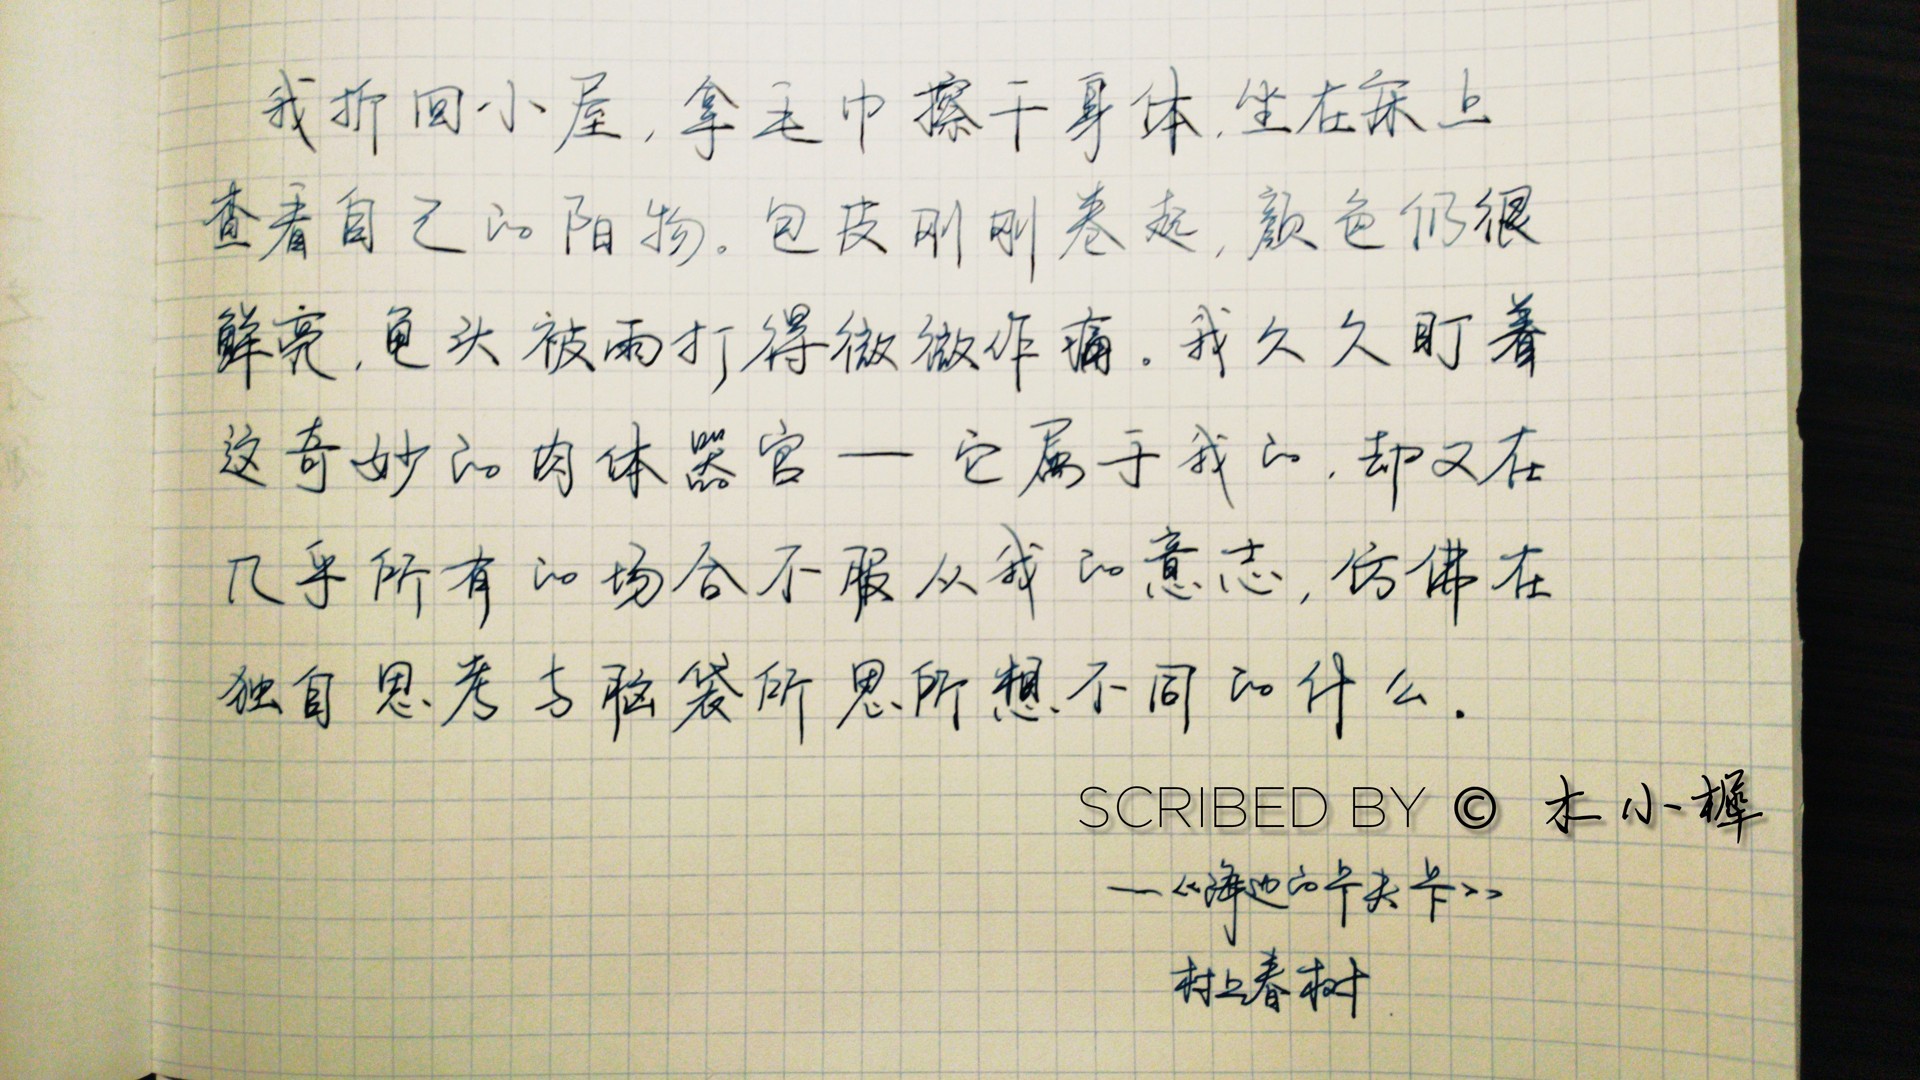 我折回小屋，拿毛巾擦干身体，坐在床上
查看自己的阳物。包皮刚刚卷起，颜色仍很
鲜亮，龟头被雨打得微微作痛。我久久盯着
这奇妙的肉体器官—它属于我的，却又在
几乎所有的场合不服从我的意志，仿佛在
独自思考与脑袋所思所想不同的什么.
SCRIBED BY © 木小樨
—《海边的卡夫卡》
村上春树